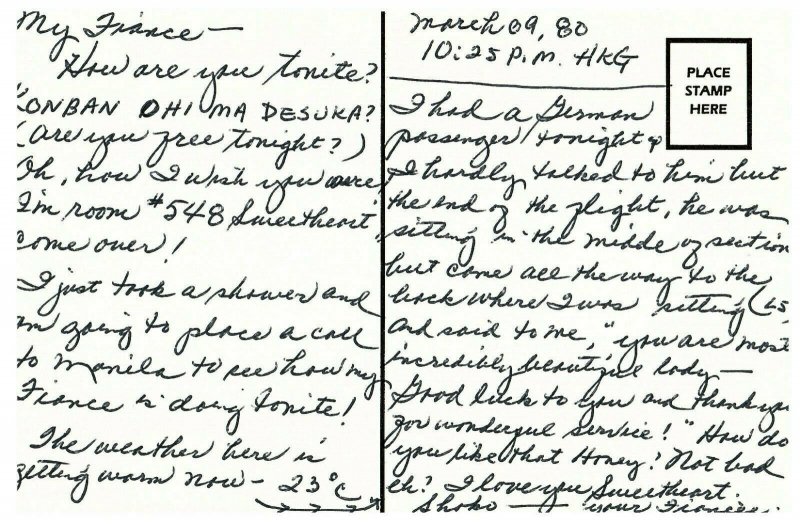 My Fiance —
How are you tonite?
KONBAN OHIMA DESUKA?
(are you free tonight?)
Oh, how I wish you were
I'm room #548 Sweetheart
come over!
I just took a shower and
am going to place a call
to Manila to see how my
Fiance is doing tonite!
The weather here is
getting warm now - 23°C
March 09, 80
10:25 P.M. HKG
PLACE
STAMP
HERE
I had a German
passenger tonight &
I hardly talked to him but
the end of the flight, he was
sitting in the midde of section
but came all the way to the
back where I was sitting (L5
and said to me, "you are most
incredibly beautiful lady —
Good luck to you and thank you
for wonderful service!" How do
you like that Honey? Not bad
eh? I love you Sweetheart.
Shoko — your Fiancée.